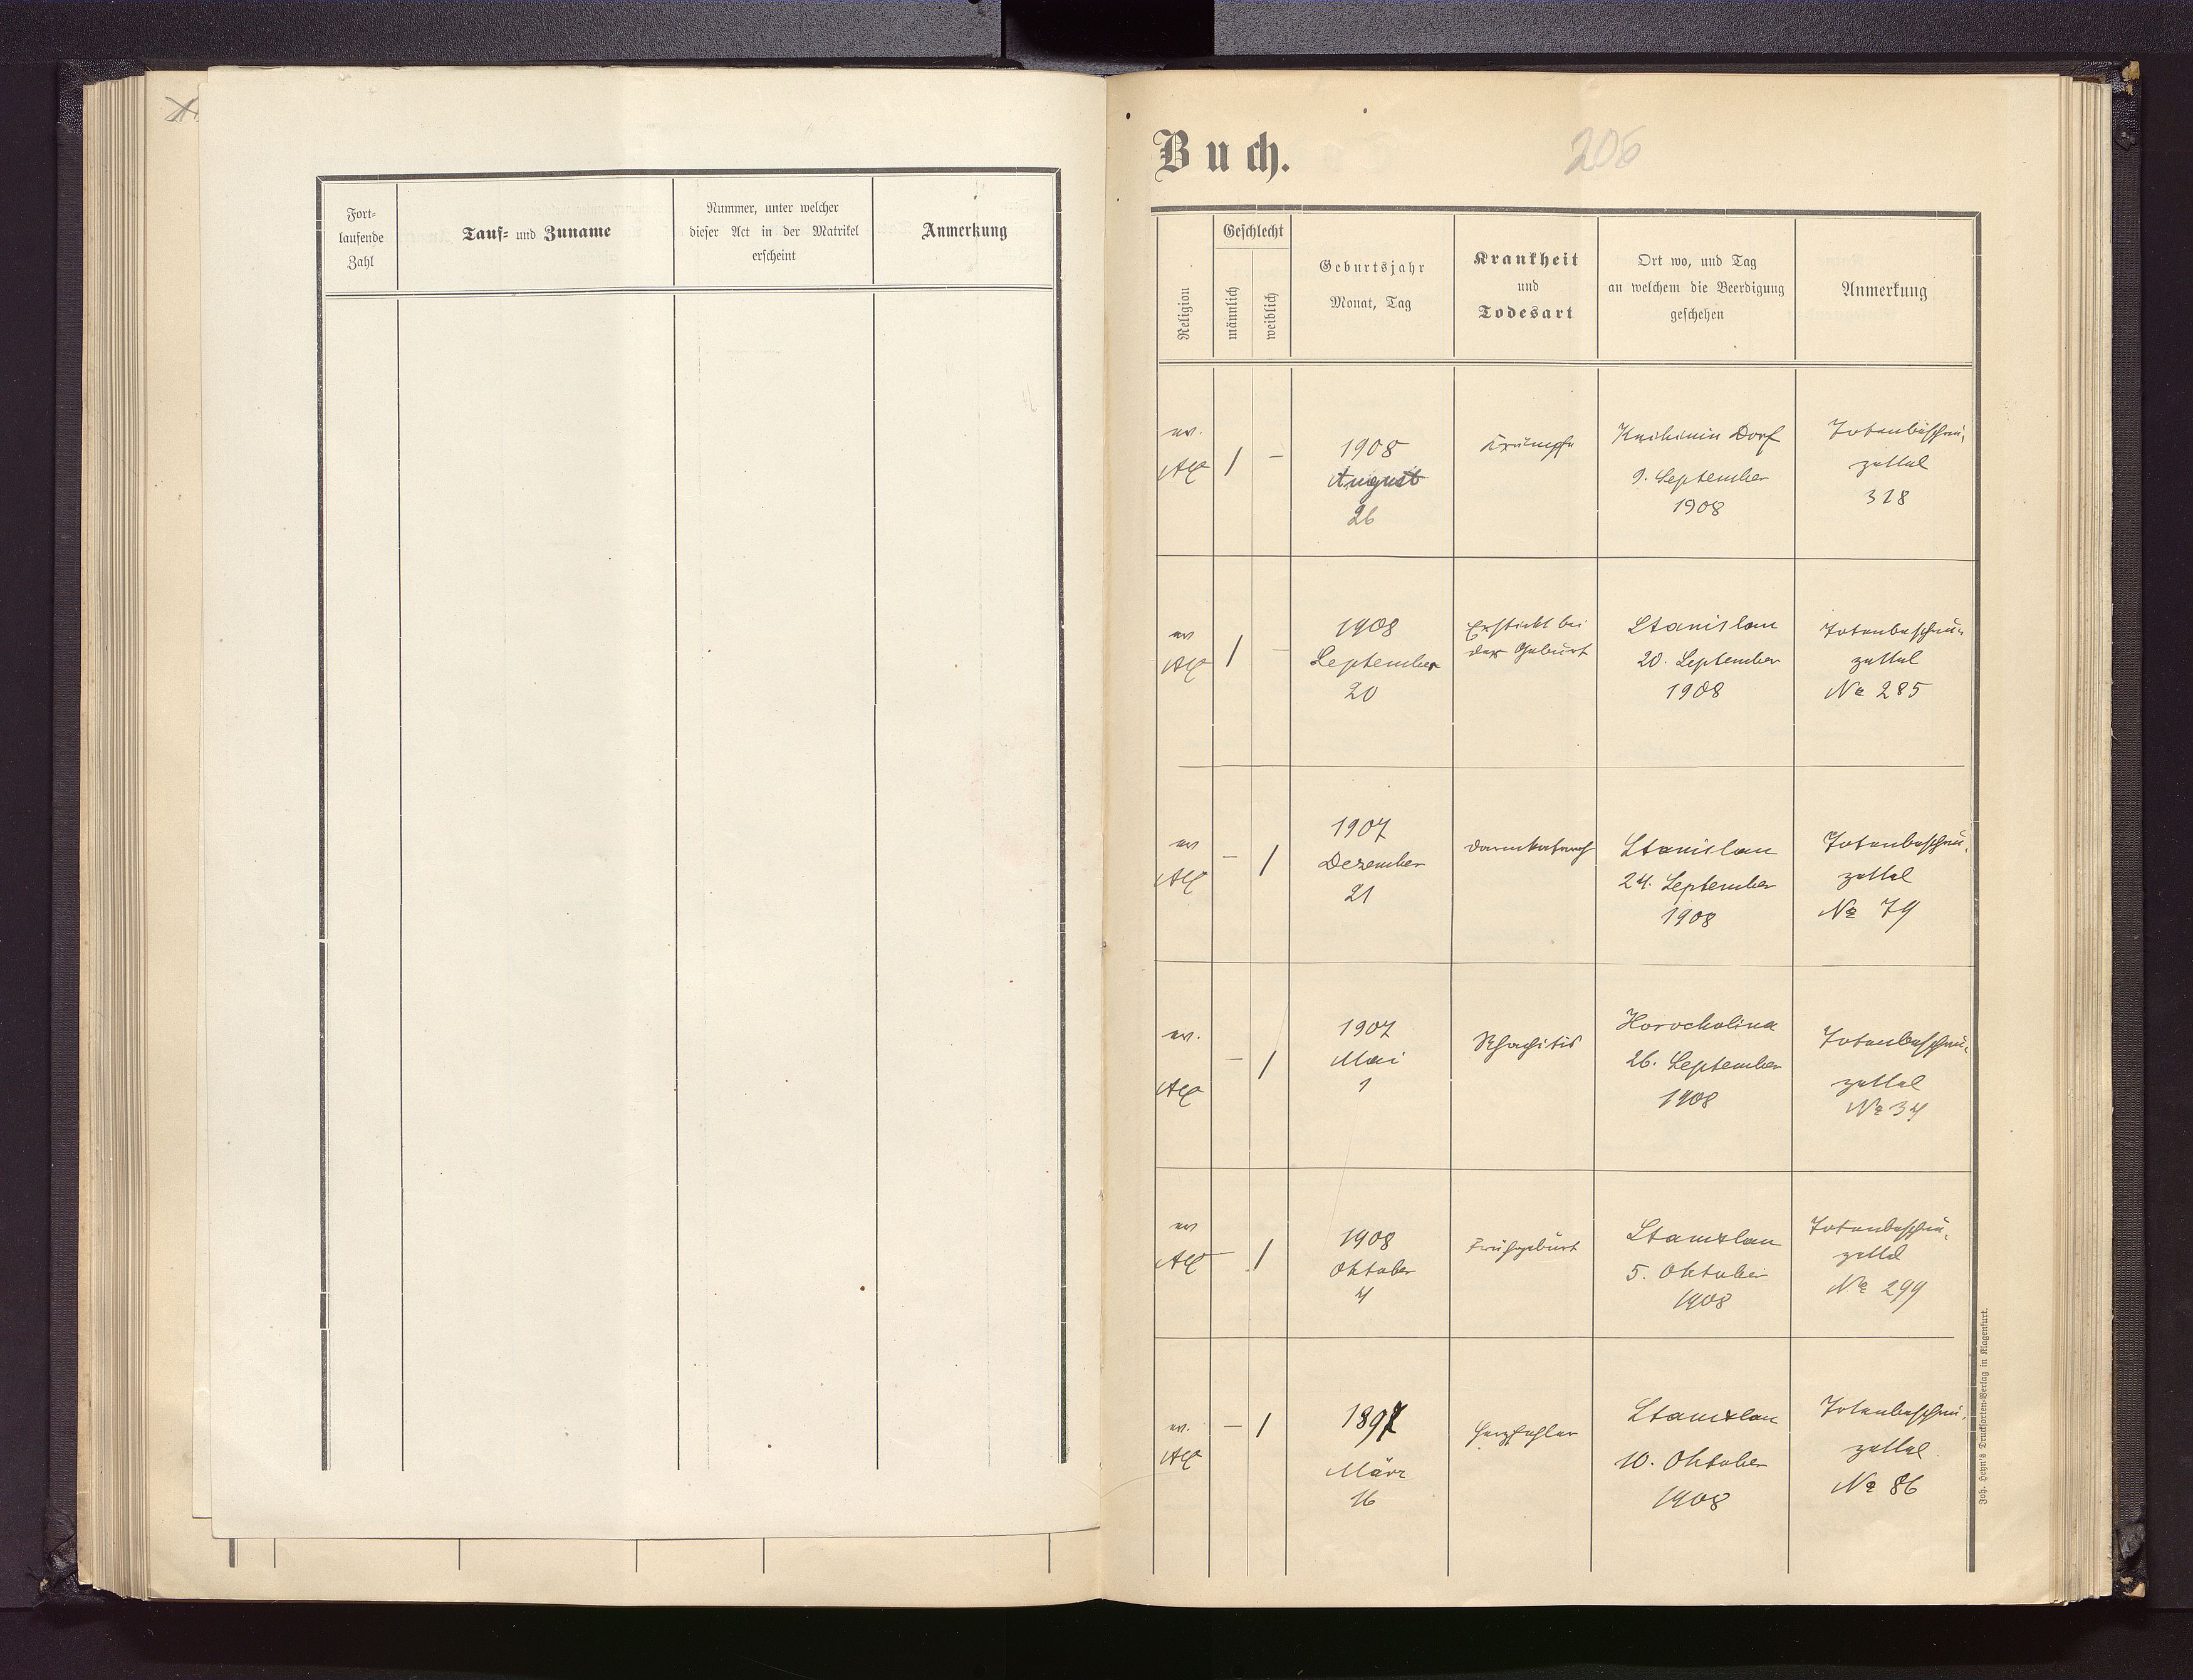 Fort-
laufende
Zahl
Tauf- und Zuname
Nummer, unter welcher
dieser Act in der Matrikel
erscheint
Anmerkung
Buch.
206
Religion
Geschlecht
männlich
weiblich
Geburtsjahr
Monat, Tag
Krankheit
und
Todesart
Ort wo, und Tag
an welchem die Beerdigung
geschehen
Anmerkung
ev.
AC
/
–
1908
August
26
Krämpfe
Knihinin Dorf
9. September
1908
Totenbeschau-
zettel
318
ev
AC
/
–
1908
September
20
Erstickt bei
der Geburt
Stanislau
20. September
1908
Totenbeschau-
zettel
No 285
ev
AC
–
/
1907
Dezember
21
Darmkatarrh
Stanislau
24. September
1908
Totenbeschau-
zettel
No 79
ev.
AC
–
/
1907
Mai
1
Rhachitis
Horocholina
26. September
1908
Totenbeschau-
zettel
No 34
ev
AC
–
/
1908
Oktober
4
Frühgeburt
Stanislau
5. Oktober
1908
Totenbeschau-
zettel
No 299
ev.
AC
–
/
1897
März
16
Herzfehler
Stanislau
10. Oktober
1908
Totenbeschau-
zettel
No 86
Joh. Heyn's Drucksorten-Verlag in Klagenfurt.